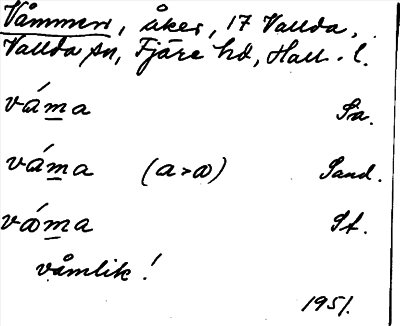 Våmmen, åker, 17 Vallda,
Vallda sn, Fjäre hd, Hall. l.
váma Sa.
váma (a>ɷ) Sand.
vɷ́ma St.
våmlik!
1951.